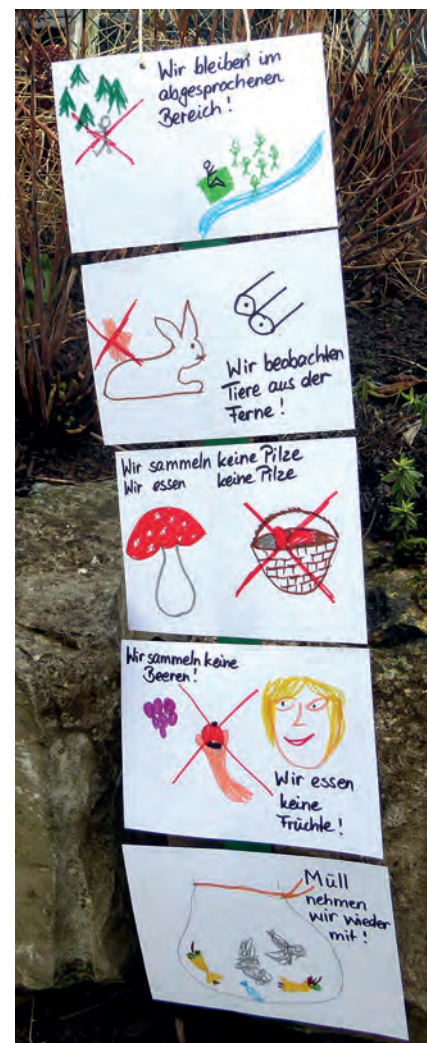 Wir bleiben im
abgesprochenen
Bereich!
Wir beobachten
Tiere aus der
Ferne!
Wir sammeln keine Pilze
Wir essen keine Pilze
Wir sammeln keine
Beeren!
Wir essen
keine
Früchte!
Müll
nehmen
wir wieder
mit!